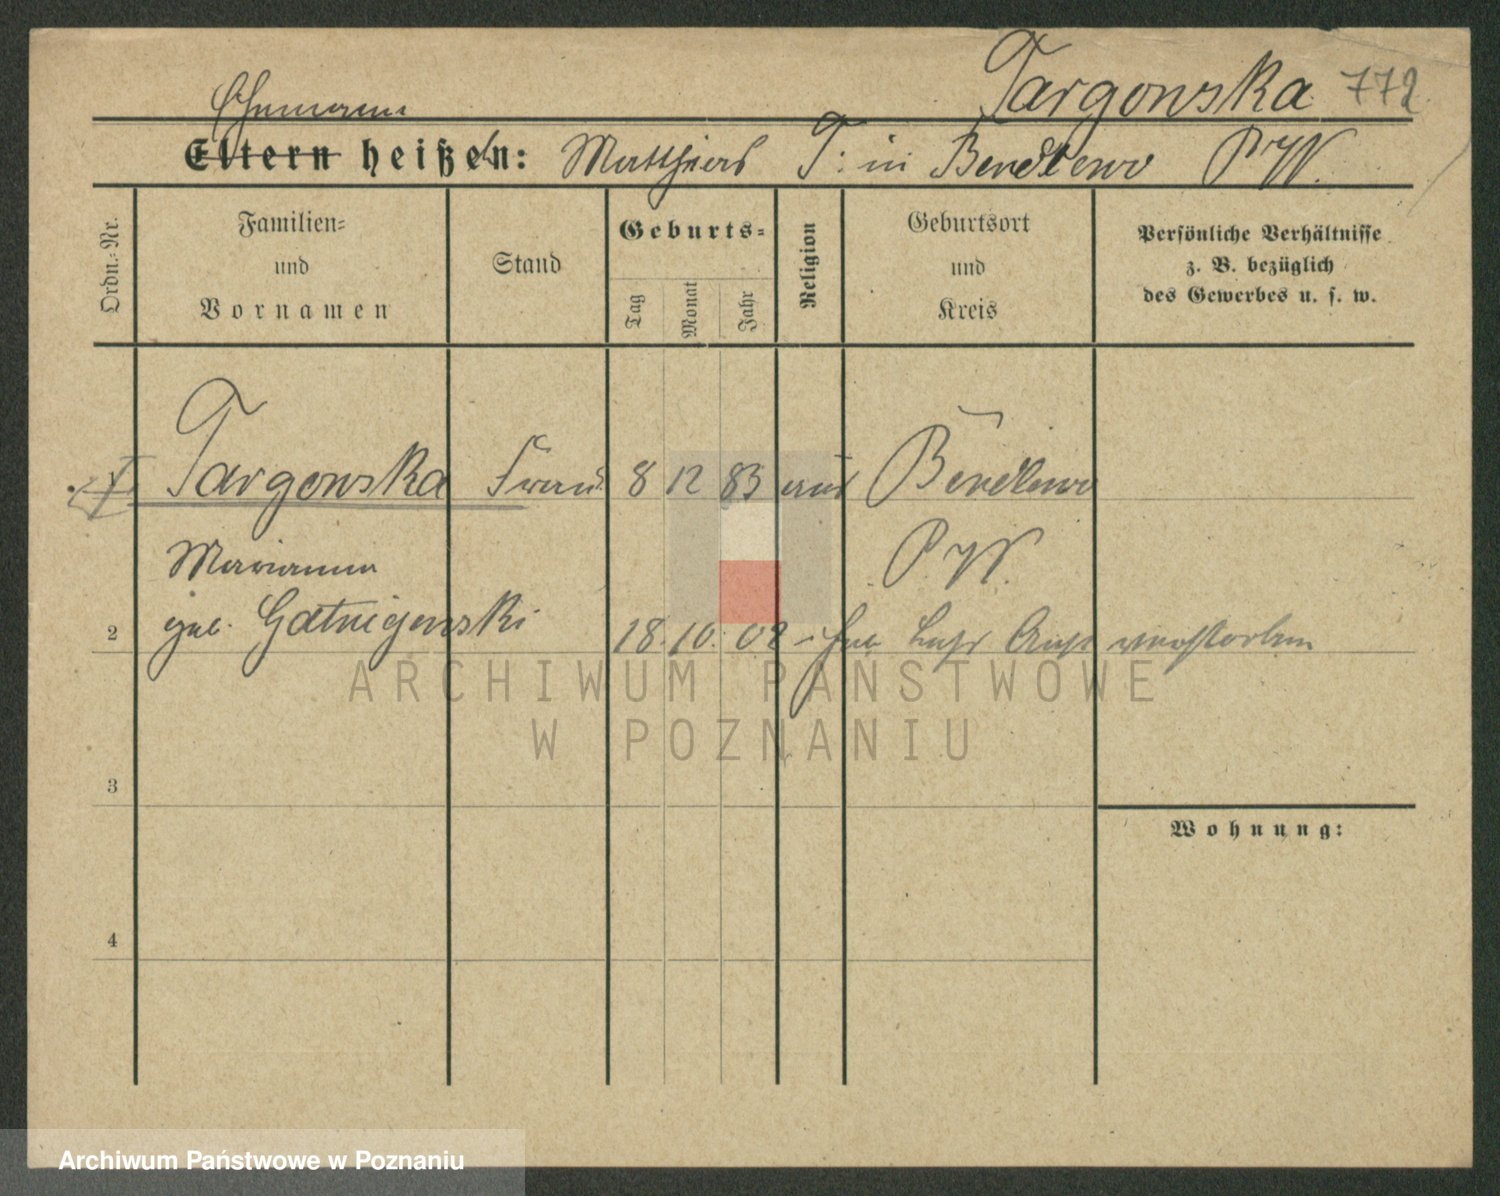 Targowska 772
Ehemann
Eltern heißen: Matthias T. in Bendlewo P/W.
Ordn.-Nr.
Familien-
und
Vornamen
Stand
Geburts-
Tag
Monat
Jahr
Religion
Geburtsort
und
Kreis
Persönliche Verhältnisse
z. B. bezüglich
des Gewerbes u. s. w.
1 Targowska Frau 8 12 83 Bendlewo
Marianna P/W.
geb.
2 18. 10. 02 verstorben
3
Wohnung:
4
ARCHIWUM PAŃSTWOWE
W POZNANIU
Archiwum Państwowe w Poznaniu